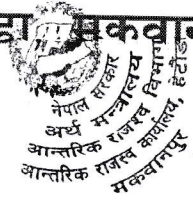 नेपाल सरकार
अर्थ मन्त्रालय
आन्तरिक राजश्व विभाग
आन्तरिक राजस्व कार्यालय, हेटौंडा
मकवानपुर